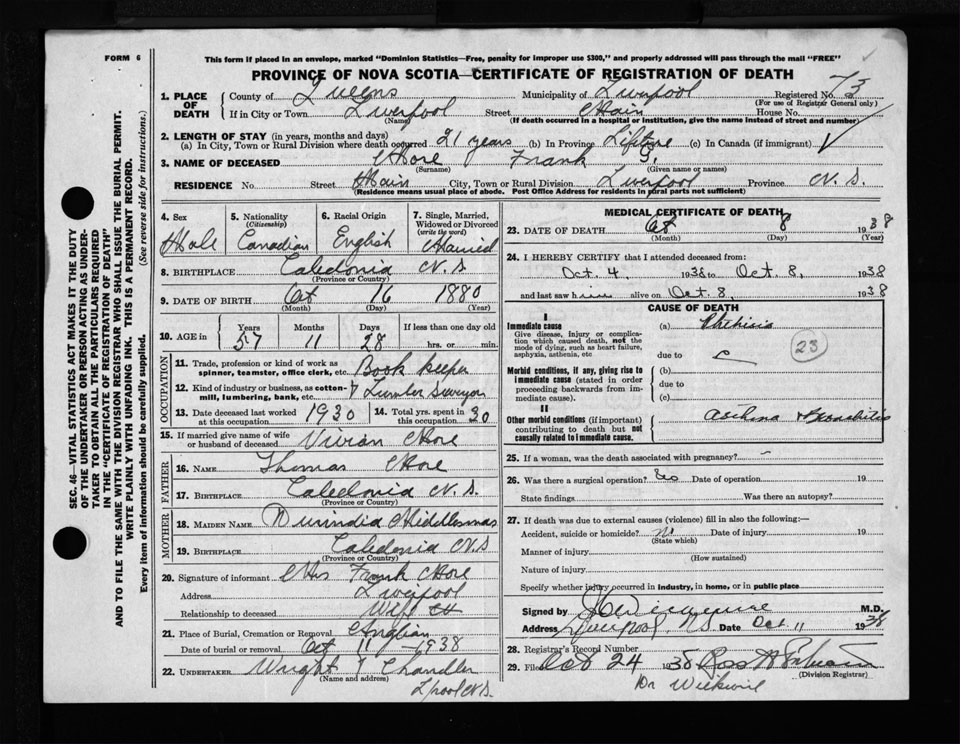 FORM 6
This form if placed in an envelope, marked "Dominion Statistics—Free, penalty for improper use $300," and properly addressed will pass through the mail "FREE"
PROVINCE OF NOVA SCOTIA—CERTIFICATE OF REGISTRATION OF DEATH
1. PLACE OF DEATH County of Queens Municipality of Liverpool Registered No. 73
(For use of Registrar General only)
If in City or Town Liverpool Street Main House No.
(Name) (If death occurred in a hospital or institution, give the name instead of street and number)
2. LENGTH OF STAY (in years, months and days)
(a) In City, Town or Rural Division where death occurred 21 years (b) In Province Lifetime (c) In Canada (if immigrant)
3. NAME OF DECEASED More Frank
(Surname) (Given name or names)
RESIDENCE No. Street Main City, Town or Rural Division Liverpool Province N.S.
(Residence means usual place of abode. Post Office Address for residents in rural parts not sufficient)
4. Sex Male
5. Nationality (Citizenship) Canadian
6. Racial Origin English
7. Single, Married, Widowed or Divorced (write the word) Married
8. BIRTHPLACE Caledonia N.S
(Province or Country)
9. DATE OF BIRTH Oct 16 1880
(Month) (Day) (Year)
10. AGE in Years 57 Months 11 Days 28 If less than one day hrs. or min.
OCCUPATION
11. Trade, profession or kind of work as spinner, teamster, office clerk, etc. Book keeper
12. Kind of industry or business, as cotton-mill, lumbering, bank, etc. & Lumber Surveyor
13. Date deceased last worked at this occupation 1930 14. Total yrs. spent in this occupation 30
15. If married give name of wife or husband of deceased Vivian More
FATHER
16. NAME Thomas More
17. BIRTHPLACE Caledonia N.S.
(Province or Country)
MOTHER
18. MAIDEN NAME Middlemas
19. BIRTHPLACE Caledonia N.S
(Province or Country)
20. Signature of informant Mrs Frank More
Address Liverpool
Relationship to deceased Wife
21. Place of Burial, Cremation or Removal
Date of burial or removal Oct 11 1938
22. UNDERTAKER Wright & Chandler
(Name and address)
L'pool N.S.
MEDICAL CERTIFICATE OF DEATH
23. DATE OF DEATH Oct 8 1938
(Month) (Day) (Year)
24. I HEREBY CERTIFY that I attended deceased from:
Oct. 4, 1938 to Oct. 8, 1938
and last saw him alive on Oct. 8, 1938
CAUSE OF DEATH
I
Immediate cause (a) Phthisis
Give disease, injury or complication which caused death, not the mode of dying, such as heart failure, asphyxia, asthenia, etc
due to 23
Morbid conditions, if any, giving rise to immediate cause (stated in order proceeding backwards from immediate cause). (b)
due to
(c)
II
Other morbid conditions (if important) contributing to death but not causally related to immediate cause. Asthma & Bronchitis
25. If a woman, was the death associated with pregnancy? –
26. Was there a surgical operation? No Date of operation 19
State findings Was there an autopsy?
27. If death was due to external causes (violence) fill in also the following:—
Accident, suicide or homicide? No Date of injury 19
(State which)
Manner of injury
(How sustained)
Nature of injury
Specify whether injury occurred in industry, in home, or in public place
Signed by M.D.
Address Liverpool, NS Date Oct. 11 1938
28. Registrar's Record Number
29. Filed Oct 24 1938
(Division Registrar)
Dr
SEC. 46—VITAL STATISTICS ACT MAKES IT THE DUTY
OF THE UNDERTAKER OR PERSON ACTING AS UNDER-
TAKER TO OBTAIN ALL THE PARTICULARS REQUIRED
IN THE "CERTIFICATE OF REGISTRATION OF DEATH"
AND TO FILE THE SAME WITH THE DIVISION REGISTRAR WHO SHALL ISSUE THE BURIAL PERMIT.
WRITE PLAINLY WITH UNFADING INK. THIS IS A PERMANENT RECORD.
Every item of information should be carefully supplied. (See reverse side for instructions.)